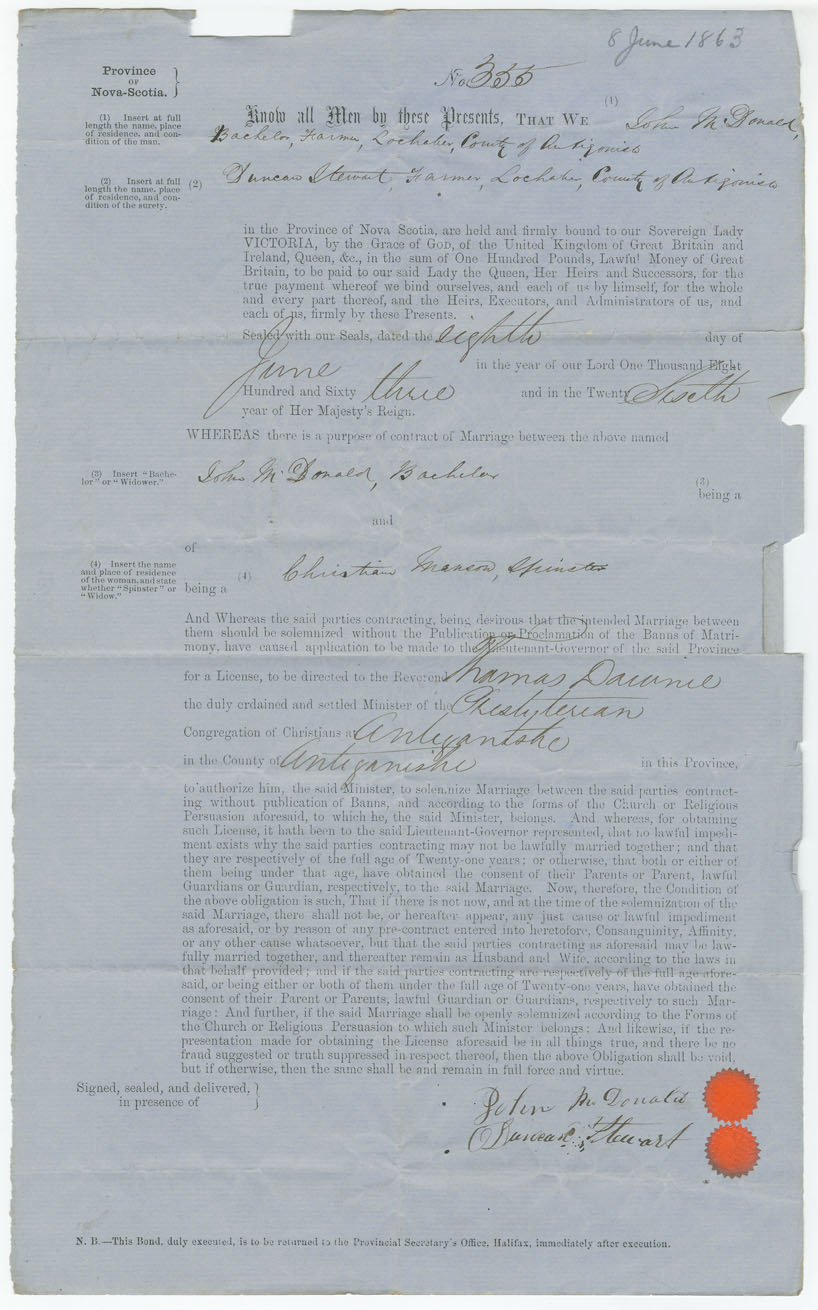 8 June 1863
No. 355
Province
OF
Nova-Scotia.
(1) Insert at full
length the name, place
of residence, and con-
dition of the man.
Know all Men by these Presents, THAT WE (1) John McDonald,
Bachelor, Farmer, Lochaber, County of Antigonish
(2) Insert at full
length the name, place
of residence, and con-
dition of the surety.
(2) Duncan Stewart, Farmer, Lochaber, County of Antigonish
in the Province of Nova Scotia, are held and firmly bound to our Sovereign Lady
VICTORIA, by the Grace of GOD, of the United Kingdom of Great Britain and
Ireland, Queen, &c., in the sum of One Hundred Pounds, Lawful Money of Great
Britain, to be paid to our said Lady the Queen, Her Heirs and Successors, for the
true payment whereof we bind ourselves, and each of us by himself, for the whole
and every part thereof, and the Heirs, Executors, and Administrators of us, and
each of us, firmly by these Presents.
Sealed with our Seals, dated the eighth day of
June in the year of our Lord One Thousand Eight
Hundred and Sixty three and in the Twenty Sixth
year of Her Majesty's Reign.
WHEREAS there is a purpose of contract of Marriage between the above named
(3) Insert "Bache-
lor" or "Widower."
John McDonald, Bachelor (3)
being a
and
of
(4) Insert the name
and place of residence
of the woman, and state
whether "Spinster" or
"Widow."
(4) Christian Manson, Spinster
being a
And Whereas the said parties contracting, being desirous that the intended Marriage between
them should be solemnized without the Publication or Proclamation of the Banns of Matri-
mony, have caused application to be made to the Lieutenant-Governor of the said Province
for a License, to be directed to the Reverend Thomas Downie
the duly ordained and settled Minister of the Presbyterian
Congregation of Christians at Antiganishe
in the County of Antiganishe in this Province,
to authorize him, the said Minister, to solemnize Marriage between the said parties contract-
ing without publication of Banns, and according to the forms of the Church or Religious
Persuasion aforesaid, to which he, the said Minister, belongs. And whereas, for obtaining
such License, it hath been to the said Lieutenant-Governor represented, that no lawful impedi-
ment exists why the said parties contracting may not be lawfully married together; and that
they are respectively of the full age of Twenty-one years; or otherwise, that both or either of
them being under that age, have obtained the consent of their Parents or Parent, lawful
Guardians or Guardian, respectively, to the said Marriage. Now, therefore, the Condition of
the above obligation is such, That if there is not now, and at the time of the solemnization of the
said Marriage, there shall not be, or hereafter appear, any just cause or lawful impediment
as aforesaid, or by reason of any pre-contract entered into heretofore, Consanguinity, Affinity,
or any other cause whatsoever, but that the said parties contracting as aforesaid may be law-
fully married together, and thereafter remain as Husband and Wife, according to the laws in
that behalf provided; and if the said parties contracting are respectively of the full age afore-
said, or being either or both of them under the full age of Twenty-one years, have obtained the
consent of their Parent or Parents, lawful Guardian or Guardians, respectively to such Mar-
riage: And further, if the said Marriage shall be openly solemnized according to the Forms of
the Church or Religious Persuasion to which such Minister belongs: And likewise, if the re-
presentation made for obtaining the License aforesaid be in all things true, and there be no
fraud suggested or truth suppressed in respect thereof, then the above Obligation shall be void,
but if otherwise, then the same shall be and remain in full force and virtue.
Signed, sealed, and delivered,
in presence of
John McDonald
Duncan Stewart
N. B.—This Bond, duly executed, is to be returned to the Provincial Secretary's Office, Halifax, immediately after execution.